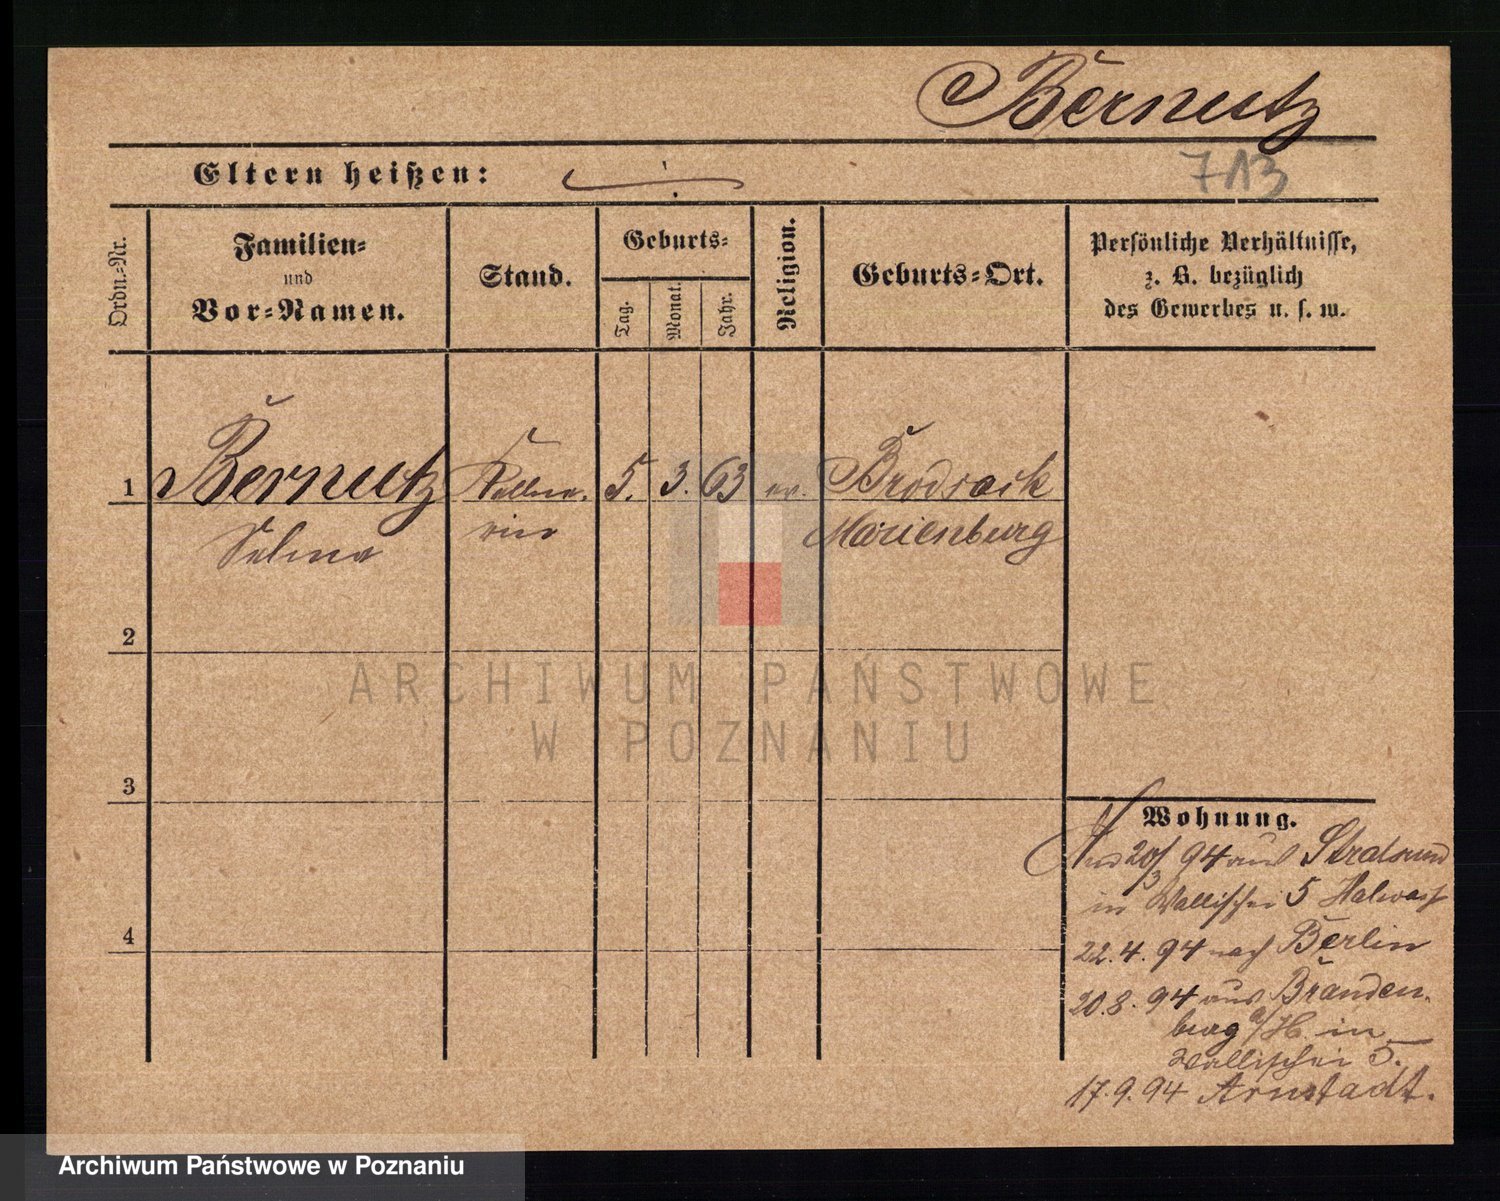 Bernutz
713
Eltern heißen:
Ordn.-Nr.
Familien-
und
Vor-Namen.
Stand.
Geburts-
Tag.
Monat.
Jahr.
Religion.
Geburts-Ort.
Persönliche Verhältnisse,
z. B. bezüglich
des Gewerbes u. s. w.
1 Bernutz Kellne- 5. 3. 63 ev. Brodsack
Selma rin Marienburg
2
3
4
ARCHIWUM PAŃSTWOWE
W POZNANIU
Wohnung.
20/3 94 aus Stralsund
in Wallischei 5
22.4.94 nach Berlin
20.8.94 aus Branden-
burg a/H. in
Wallischei 5.
17.9.94 Arnstadt.
Archiwum Państwowe w Poznaniu